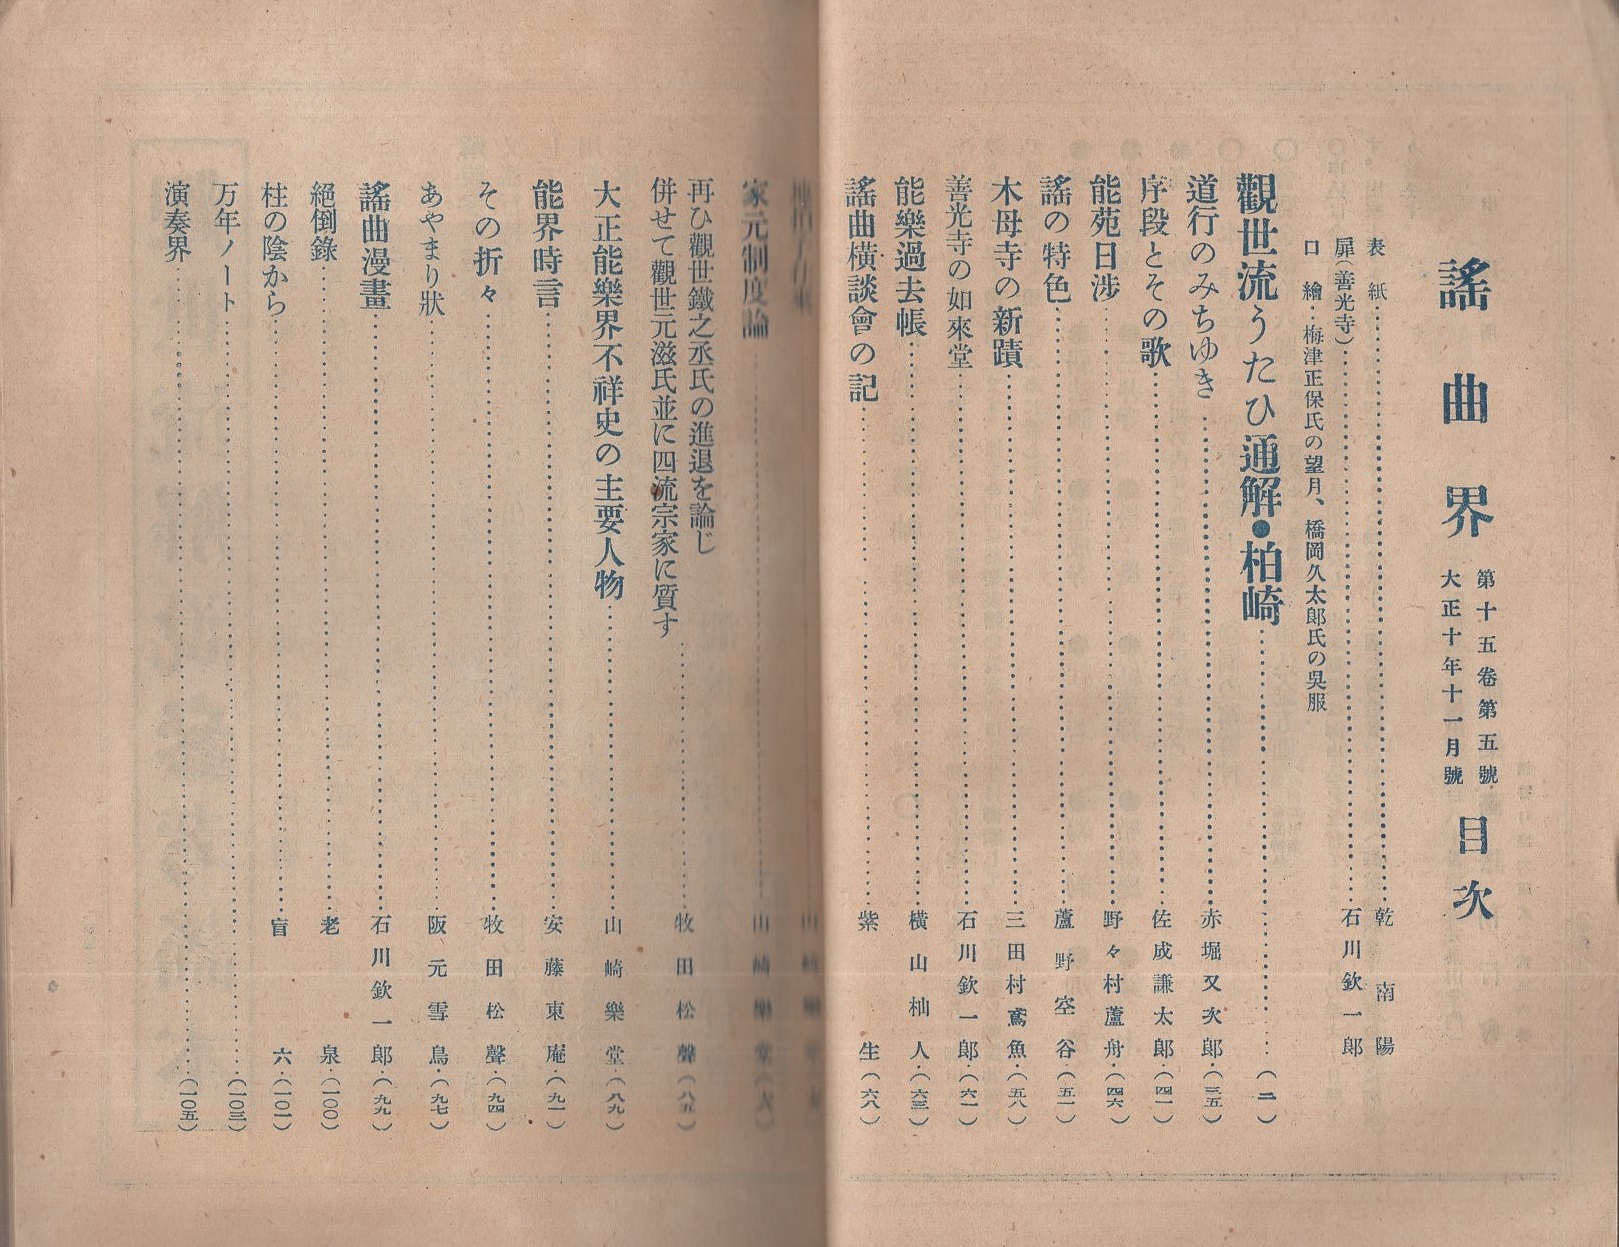 謠曲界 第十五卷第五號 大正十年十一月號 目次
表紙……乾南陽
扉(善光寺)……石川欽一郎
口繪・梅津正保氏の望月、橋岡久太郎氏の吳服
觀世流うたひ通解●柏崎……(二)
道行のみちゆき……赤堀又次郎・(三五)
序段とその歌……佐成謙太郎・(四一)
能苑日渉……野々村蘆舟・(四六)
謠の特色……蘆野空谷・(五一)
木母寺の新蹟……三田村鳶魚・(五八)
善光寺の如來堂……石川欽一郎・(六一)
能樂過去帳……橫山杣人・(六三)
謠曲橫談會の記……紫生(六八)
家元制度論……山崎樂堂
再ひ觀世鐵之丞氏の進退を論じ
併せて觀世元滋氏並に四流宗家に質す……牧田松聲(八五)
大正能樂界不祥史の主要人物……山崎樂堂・(八九)
能界時言……安藤東庵・(九一)
その折々……牧田松聲・(九四)
あやまり狀……阪元雪鳥・(九七)
謠曲漫畫……石川欽一郎・(九九)
絕倒錄……老泉・(一〇〇)
柱の陰から……盲六・(一〇一)
万年ノート……(一〇三)
演奏界……(一〇五)